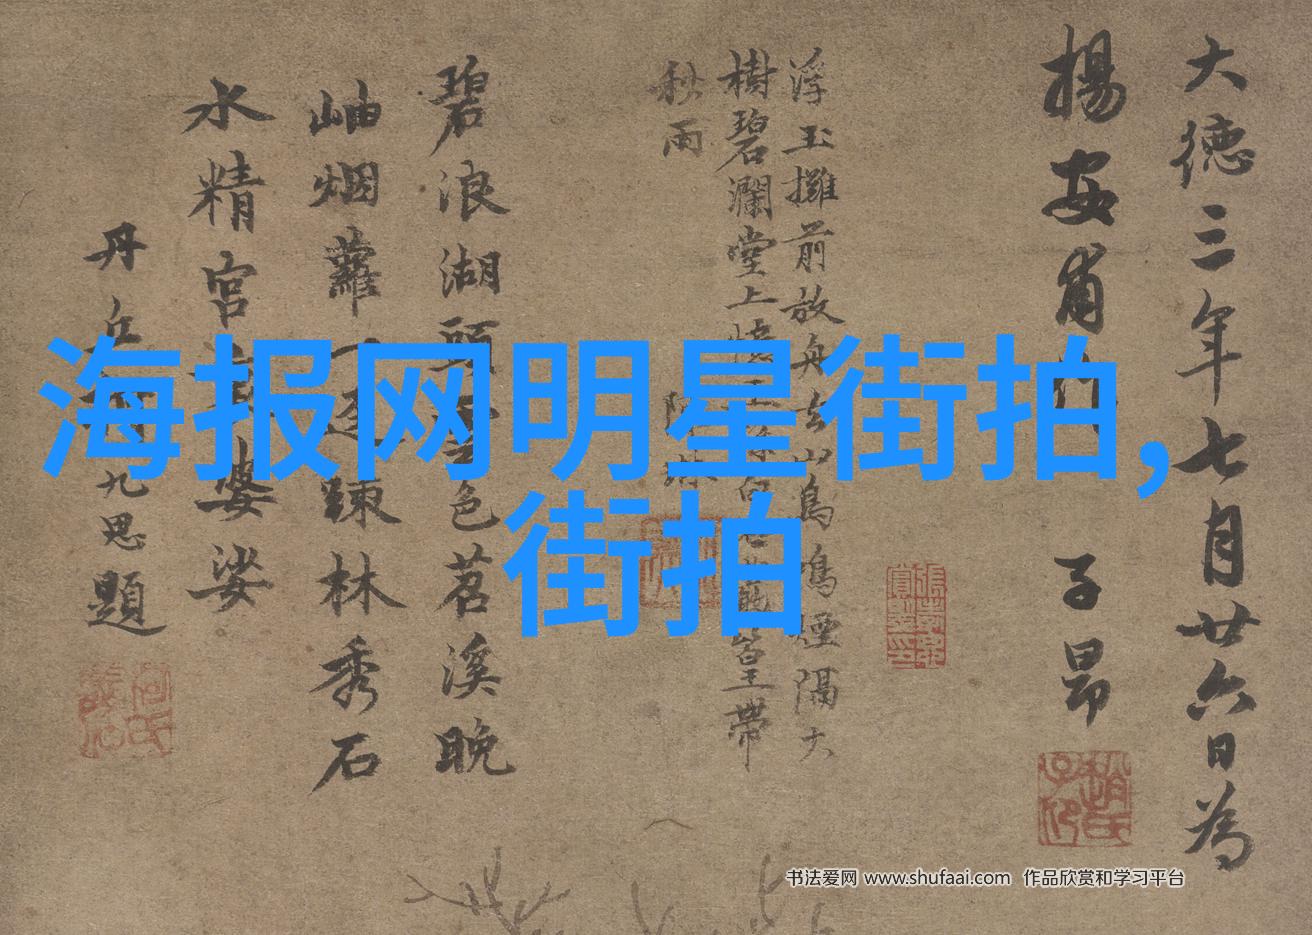 海报网明星街拍,
街拍
大德三年七月廿六日為
揚安甫 子昂
浮玉攤前放舟去山鳥鳴煙隔大
樹碧瀾堂上 皇帶
秋雨
碧浪湖頭 色苕溪晚
岫烟蘿 踈林秀石
水精宮 婆娑
丹丘 九思題
书法爱网 www.shufaai.com 作品欣赏和学习平台